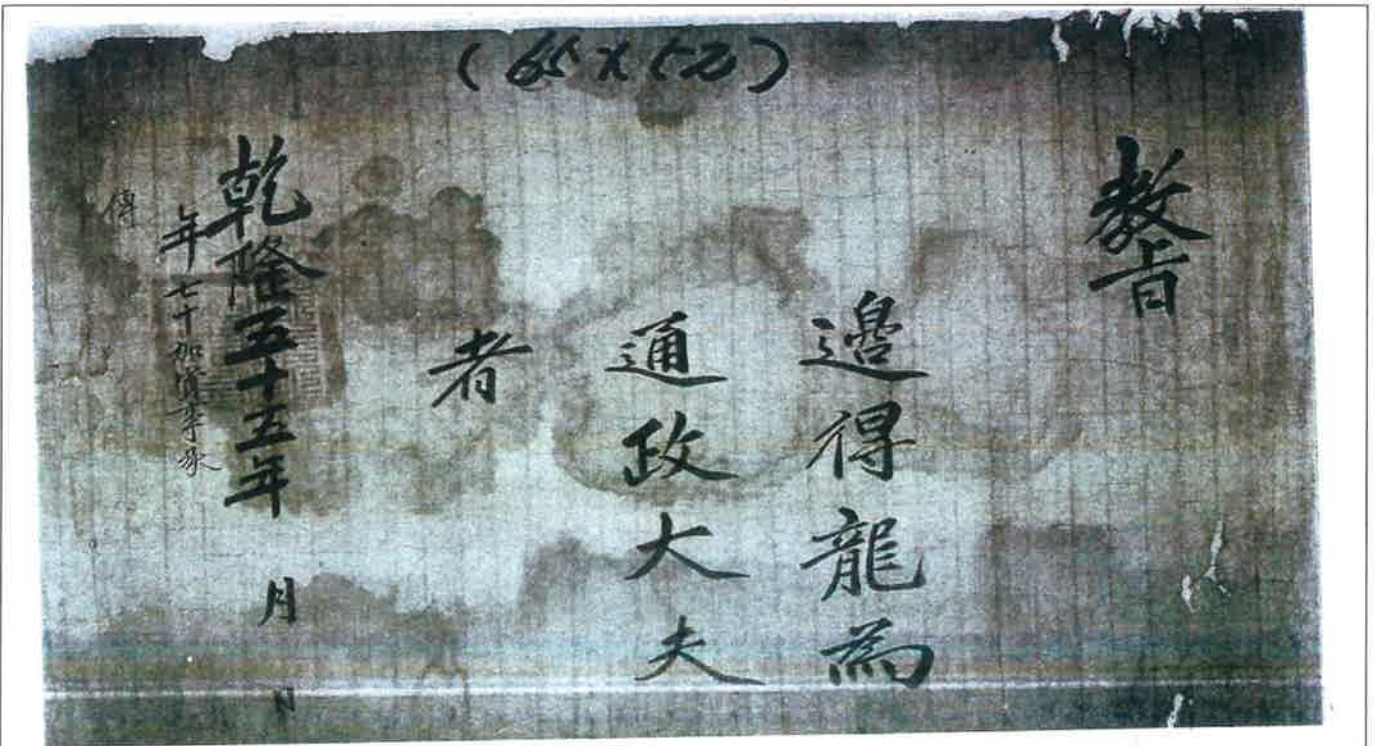 敎旨
邊得龍為
通政大夫
者
乾隆五十五年 月 日
年七十加資事承
傳